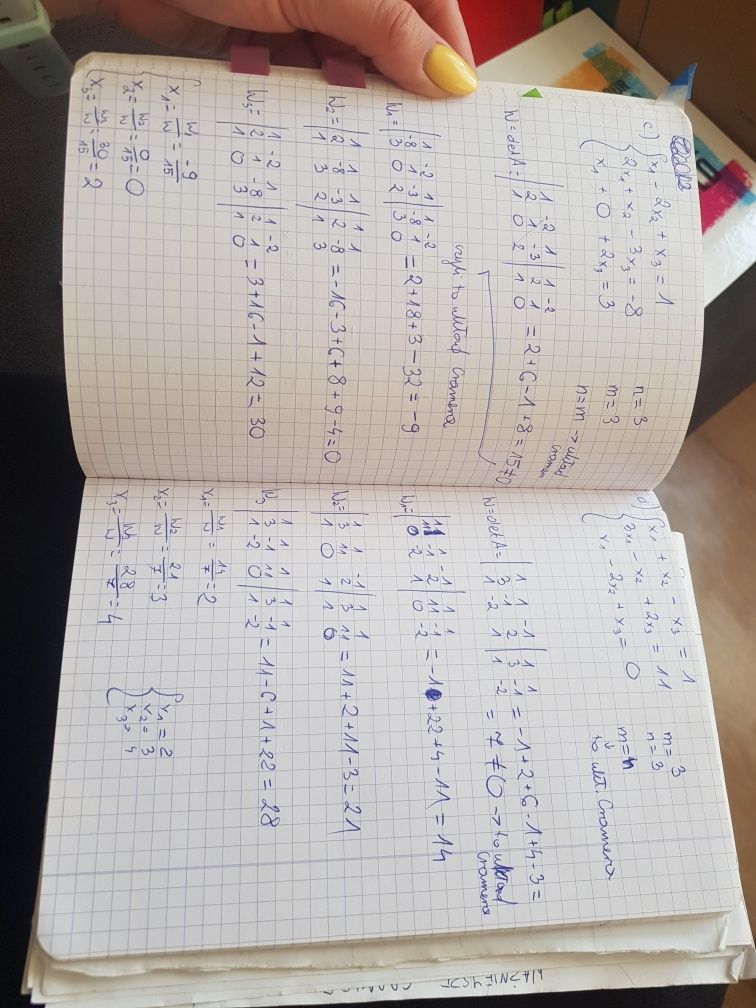 c) { x₁ - 2x₂ + x₃ = 1
2x₁ + x₂ - 3x₃ = -8
x₁ + 0 + 2x₃ = 3
n = 3
m = 3
n = m → układ
W = det A = | 1 -2 1 | 1 -2
2 1 -3 | 2 1
1 0 2 | 1 0 = 2 + 6 - 1 + 8 = 15 ≠ 0
czyli to układ Cramera
W₁ = | 1 -2 1 | 1 -2
-8 1 -3 | -8 1
3 0 2 | 3 0 = 2 + 18 + 3 - 32 = -9
W₂ = | 1 1 1 | 1 1
2 -8 -3 | 2 -8
1 3 2 | 1 3 = -16 - 3 + 6 + 8 + 9 - 4 = 0
W₃ = | 1 -2 1 | 1 -2
2 1 -8 | 2 1
1 0 3 | 1 0 = 3 + 16 - 1 + 12 = 30
{ x₁ = W₁/W = -9/15
x₂ = W₂/W = 0/15 = 0
x₃ = W₃/W = 30/15 = 2
d) { x₁ + x₂ - x₃ = 1
3x₁ - x₂ + 2x₃ = 11
x₁ - 2x₂ + x₃ = 0
m = 3
n = 3
m = n
to ukł. Cramera
W = det A = | 1 1 -1 | 1 1
3 -1 2 | 3 -1
1 -2 1 | 1 -2 = -1 + 2 + 6 - 1 + 4 - 3 =
= 7 ≠ 0 → to układ
Cramera
W₁ = | 1 1 -1 | 1 1
11 -1 2 | 11 -1
0 -2 1 | 0 -2 = -1 + 22 + 4 - 11 = 14
W₂ = | 1 1 -1 | 1 1
3 11 2 | 3 11
1 0 1 | 1 0 = 11 + 2 + 11 - 3 = 21
W₃ = | 1 1 1 | 1 1
3 -1 11 | 3 -1
1 -2 0 | 1 -2 = 11 - 6 + 1 + 22 = 28
x₁ = W₁/W = 14/7 = 2
x₂ = W₂/W = 21/7 = 3
x₃ = W₃/W = 28/7 = 4
{ x₁ = 2
x₂ = 3
x₃ = 4